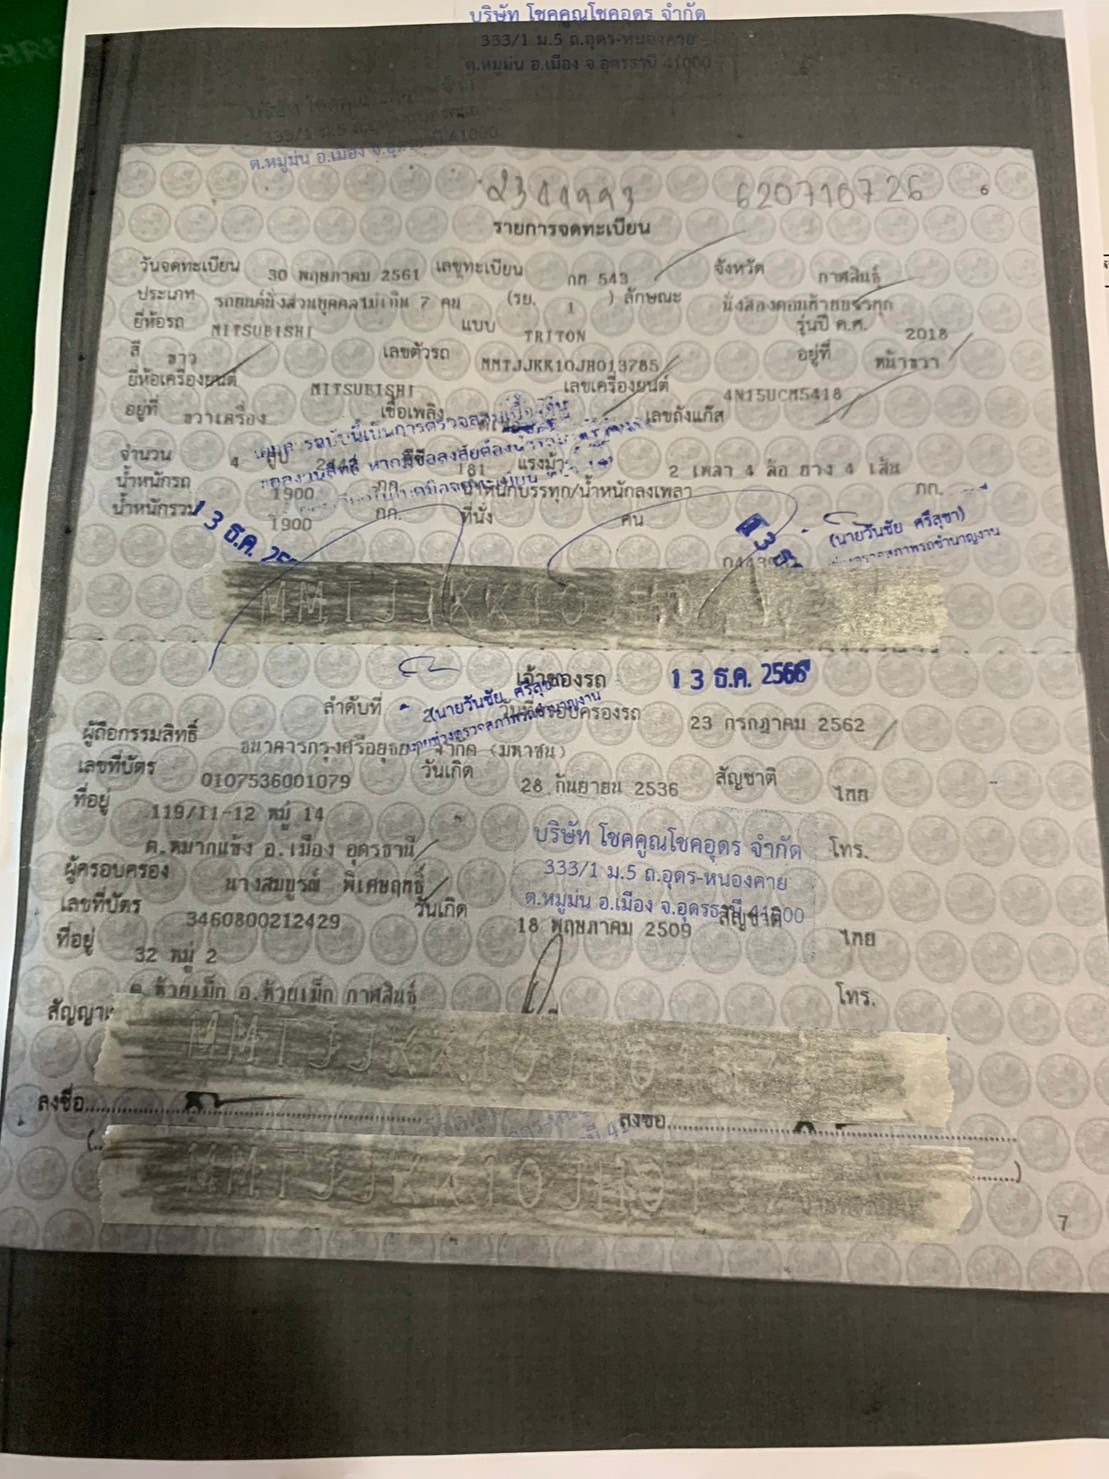 บริษัท โชคคูณโชคอุดร จำกัด
333/1 ม.5 ถ.อุดร-หนองคาย
ต.หมูม่น อ.เมือง จ.อุดรธานี 41000
333/1 ม.5
ต.หมูม่น อ.เมือง จ.อุดรธานี 41000
620710726
6
รายการจดทะเบียน
วันจดทะเบียน 30 พฤษภาคม 2561 เลขทะเบียน กท 543 จังหวัด กาฬสินธุ์
ประเภท รถยนต์นั่งส่วนบุคคลไม่เกิน 7 คน (รย. 1 ) ลักษณะ นั่งสองตอนท้ายบรรทุก
ยี่ห้อรถ MITSUBISHI แบบ TRITON รุ่นปี ค.ศ. 2018
สี ขาว เลขตัวรถ MMTJJKK10JH013785 อยู่ที่ หน้าขวา
ยี่ห้อเครื่องยนต์ MITSUBISHI เลขเครื่องยนต์ 4N15UCM5418
อยู่ที่ ขวาเครื่อง เชื้อเพลิง เลขถังแก๊ส
จำนวน 4 สูบ 2442 181 แรงม้า 2 เพลา 4 ล้อ ยาง 4 เส้น
น้ำหนักรถ 1900 กก. น้ำหนักบรรทุก/น้ำหนักลงเพลา กก.
น้ำหนักรวม 1900 กก. ที่นั่ง คน
13 ธ.ค.
(นายวันชัย ศรีสุชา)
นายช่างตรวจสภาพรถชำนาญงาน
MMTJJKK10
เจ้าของรถ
13 ธ.ค. 2566
(นายวันชัย ศรีสุชา)
นายช่างตรวจสภาพรถชำนาญงาน
ลำดับที่ วันที่ครอบครองรถ 23 กรกฎาคม 2562
ผู้ถือกรรมสิทธิ์ ธนาคารกรุงศรีอยุธยา จำกัด (มหาชน)
เลขที่บัตร 0107536001079 วันเกิด 28 กันยายน 2536 สัญชาติ ไทย
ที่อยู่ 119/11-12 หมู่ 14
ต.หมากแข้ง อ.เมือง อุดรธานี โทร.
บริษัท โชคคูณโชคอุดร จำกัด
333/1 ม.5 ถ.อุดร-หนองคาย
ต.หมูม่น อ.เมือง จ.อุดรธานี 41000
ผู้ครอบครอง นางสมบูรณ์ พิเศษฤทธิ์
เลขที่บัตร 3460800212429 วันเกิด 18 พฤษภาคม 2509 สัญชาติ ไทย
ที่อยู่ 32 หมู่ 2
ต.ห้วยเม็ก อ.ห้วยเม็ก กาฬสินธุ์ โทร.
ลงชื่อ ลงชื่อ
MMTJJKK10JH01
7